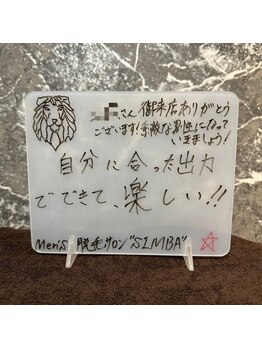 さん御来店ありがとう
ございます!素敵な男性になって
いきましょう!
自分に合った出力
でできて、楽しい!!
Men's 脱毛サロン "SIMBA"